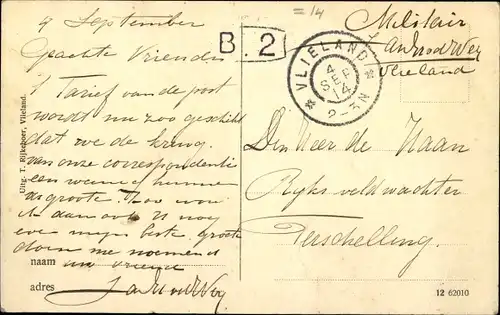 4 September
Geachte Vriend
't Tarief van de post
wordt nu zoo geschikt
dat we de kring
van onze correspondentie
een weinig kunnen
vergroote. Zoo wou
ik dan ook U nog
eve mijn beste groete
doen me noemend
naam uw vriend
adres
Uitg. T. Rijkeboer, Vlieland.
=14
B.2
VLIELAND
4 SEP 14
2-3N
Militair
Vlieland
Den Heer de Haan
Ryks veldwachter
Terschelling.
12 62010